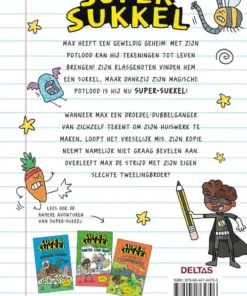 SUPER
SUKKEL
MAX HEEFT EEN GEWELDIG GEHEIM! MET ZIJN
POTLOOD KAN HIJ TEKENINGEN TOT LEVEN
BRENGEN! ZIJN KLASGENOTEN VINDEN HEM
EEN SUKKEL, MAAR DANKZIJ ZIJN MAGISCHE
POTLOOD IS HIJ NU SUPER-SUKKEL!
WANNEER MAX EEN DROEDEL-DUBBELGANGER
VAN ZICHZELF TEKENT OM ZIJN HUISWERK TE
MAKEN, LOOPT HET VRESELIJK MIS. ZIJN KOPIE
NEEMT NAMELIJK NIET GRAAG BEVELEN AAN.
OVERLEEFT MAX DE STRIJD MET ZIJN EIGEN
SLECHTE TWEELINGBROER?
LEES OOK DE
ANDERE AVONTUREN
VAN SUPER-SUKKEL!
SUPER
SUKKEL
SUPER
SUKKEL
SUPER
SUKKEL
DELTAS